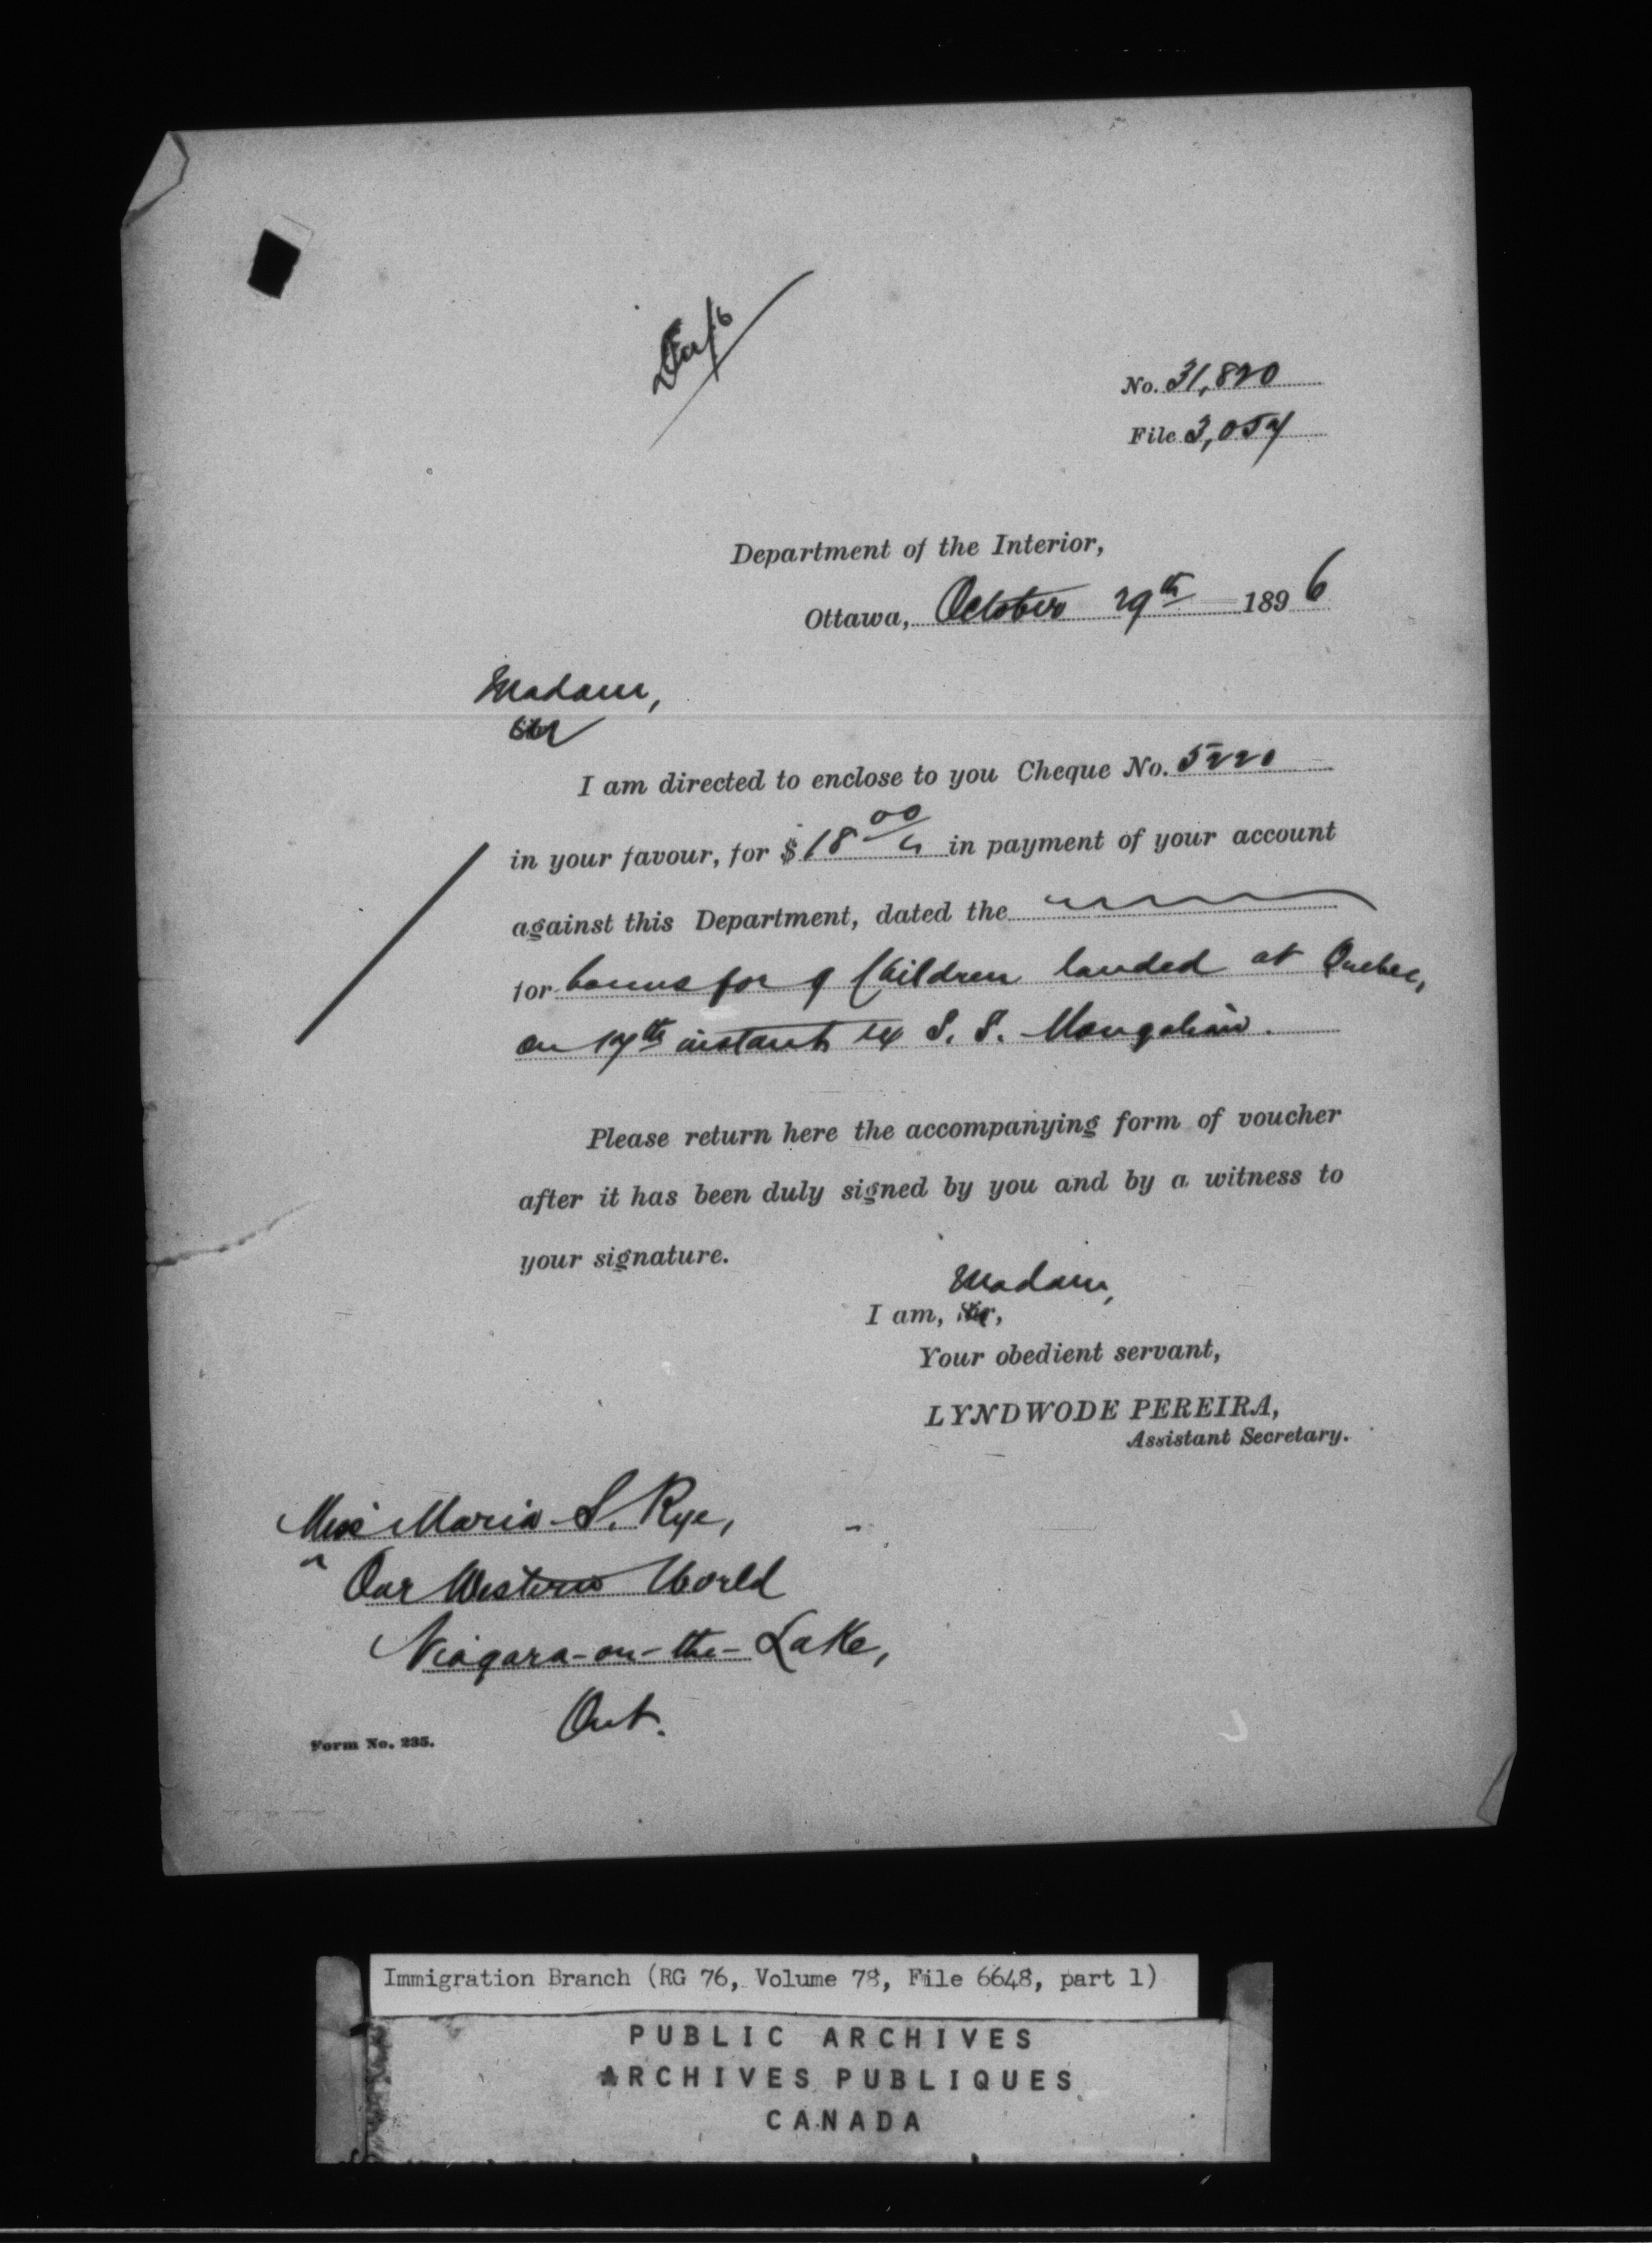 No. 31,820
File 3,054
Department of the Interior,
Ottawa, October 29th 1896
Madam,
Sir
I am directed to enclose to you Cheque No. 5220
in your favour, for $18 00/ in payment of your account
against this Department, dated the
for bonus for 9 Children landed at Quebec,
on 17th instant ex S. S. Mongolian.
Please return here the accompanying form of voucher
after it has been duly signed by you and by a witness to
your signature.
Madam,
I am, Sir,
Your obedient servant,
LYNDWODE PEREIRA,
Assistant Secretary.
Miss Maria S. Rye,
Our Western World
Niagara-on-the-Lake,
Ont.
Form No. 235.
Immigration Branch (RG 76, Volume 78, File 6648, part 1)
PUBLIC ARCHIVES
ARCHIVES PUBLIQUES
CANADA